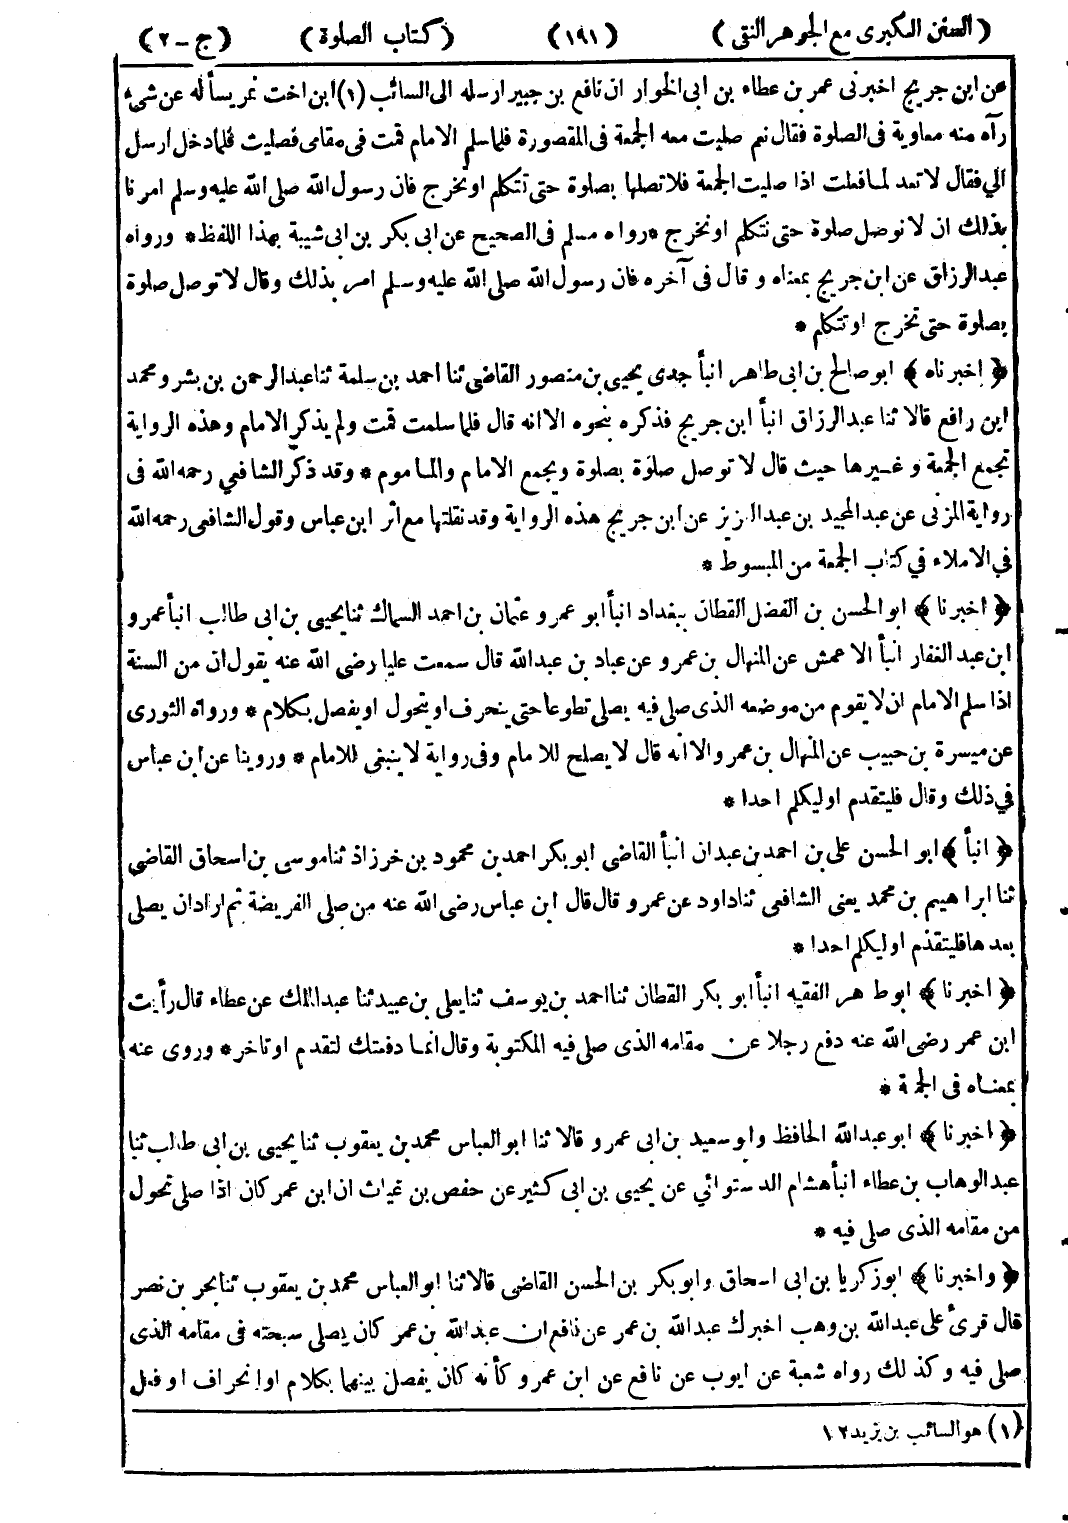 (السنن الكبرى مع الجوهر النقى) (١٩١) (كتاب الصلوة) (ج-٢)
عن ابن جريج اخبرنى عمر بن عطاء بن ابى الخوار ان نافع بن جبير ارسله الى السائب (١) ابن اخت نمر يسأله عن شىء
رآه منه معاوية فى الصلوة فقال نعم صليت معه الجمعة فى المقصورة فلما سلم الامام قمت فى مقامى فصليت فلما دخل ارسل
الي فقال لا تعد لما فعلت اذا صليت الجمعة فلا تصلها بصلوة حتى تتكلم او تخرج فان رسول الله صلى الله عليه وسلم امر نا
بذلك ان لا نوصل صلوة حتى نتكلم او نخرج * رواه مسلم فى الصحيح عن ابى بكر بن ابى شيبة بهذا اللفظ * ورواه
عبد الرزاق عن ابن جريج بمعناه و قال فى آخره فان رسول الله صلى الله عليه وسلم امر بذلك وقال لا توصل صلوة
بصلوة حتى تخرج او تتكلم *
﴿ اخبرناه ﴾ ابو صالح بن ابى طاهر انبأ جدى يحيى بن منصور القاضى ثنا احمد بن سلمة ثنا عبد الرحمن بن بشر و محمد
ابن رافع قالا ثنا عبد الرزاق انبأ ابن جريج فذكره بنحوه الا انه قال فلما سلمت قمت ولم يذكر الامام وهذه الرواية
تجمع الجمعة و غيرها حيث قال لا توصل صلوة بصلوة ويجمع الامام والماموم * وقد ذكر الشافعي رحمه الله فى
رواية المزنى عن عبد المجيد بن عبد العزيز عن ابن جريج هذه الرواية وقد نقلتها مع اثر ابن عباس وقول الشافعى رحمه الله
في الاملاء في كتاب الجمعة من المبسوط *
﴿ اخبرنا ﴾ ابو الحسن بن الفضل القطان ببغداد انبأ ابو عمر و عثمان بن احمد السماك ثنا يحيى بن ابى طالب انبأ عمرو
ابن عبد الغفار انبأ الاعمش عن المنهال بن عمرو عن عباد بن عبد الله قال سمعت عليا رضى الله عنه يقول ان من السنة
اذا سلم الامام ان لا يقوم من موضعه الذى صلى فيه يصلى تطوعا حتى ينحرف او يتحول او يفصل بكلام * ورواه الثورى
عن ميسرة بن حبيب عن المنهال بن عمرو الا انه قال لا يصلح للامام وفى رواية لا ينبغى للامام * وروينا عن ابن عباس
في ذلك وقال فليتقدم او ليكلم احدا *
﴿ انبأ ﴾ ابو الحسن على بن احمد بن عبدان انبأ القاضى ابو بكر احمد بن محمود بن خرزاذ ثنا موسى بن اسحاق القاضى
ثنا ابراهيم بن محمد يعنى الشافعى ثنا داود عن عمرو قال قال ابن عباس رضى الله عنه من صلى الفريضة ثم اراد ان يصلى
بعدها فليتقدم او ليكلم احدا *
﴿ اخبرنا ﴾ ابو طاهر الفقيه انبأ ابو بكر القطان ثنا احمد بن يوسف ثنا يعلى بن عبيد ثنا عبد الملك عن عطاء قال رأيت
ابن عمر رضى الله عنه دفع رجلا عن مقامه الذى صلى فيه المكتوبة وقال انما دفعتك لتقدم او تاخر * وروى عنه
بمعناه فى الجمعة *
﴿ اخبرنا ﴾ ابو عبد الله الحافظ وابو سعيد بن ابى عمرو قالا ثنا ابو العباس محمد بن يعقوب ثنا يحيى بن ابى طالب ثنا
عبد الوهاب بن عطاء انبأ هشام الدستوائي عن يحيى بن ابى كثير عن حفص بن غياث ان ابن عمر كان اذا صلى تحول
من مقامه الذى صلى فيه *
﴿ واخبرنا ﴾ ابو زكريا بن ابى اسحاق وابو بكر بن الحسن القاضى قالا ثنا ابو العباس محمد بن يعقوب ثنا بحر بن نصر
قال قرئ على عبد الله بن وهب اخبرك عبد الله بن عمر عن نافع ان عبد الله بن عمر كان يصلى سبحته فى مقامه الذى
صلى فيه و كذلك رواه شعبة عن ايوب عن نافع عن ابن عمرو كأنه كان يفصل بينهما بكلام او انحراف او فعل
(١) هو السائب بن يزيد ١٢